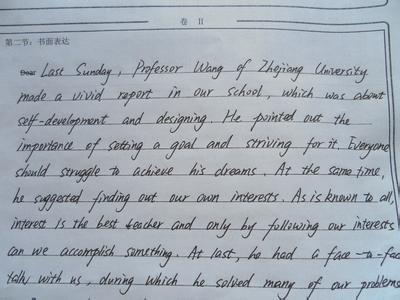 卷 II
第二节：书面表达
Dear Last Sunday, Professor Wang of Zhejiang University
made a vivid report in our school, which was about
self-development and designing. He pointed out the
importance of setting a goal and striving for it. Everyone
should struggle to achieve his dreams. At the same time,
he suggested finding out our own interests. As is known to all,
interest is the best teacher and only by following our interests
can we accomplish something. At last, he had a face-to-fac
talk with us, during which he solved many of our problems